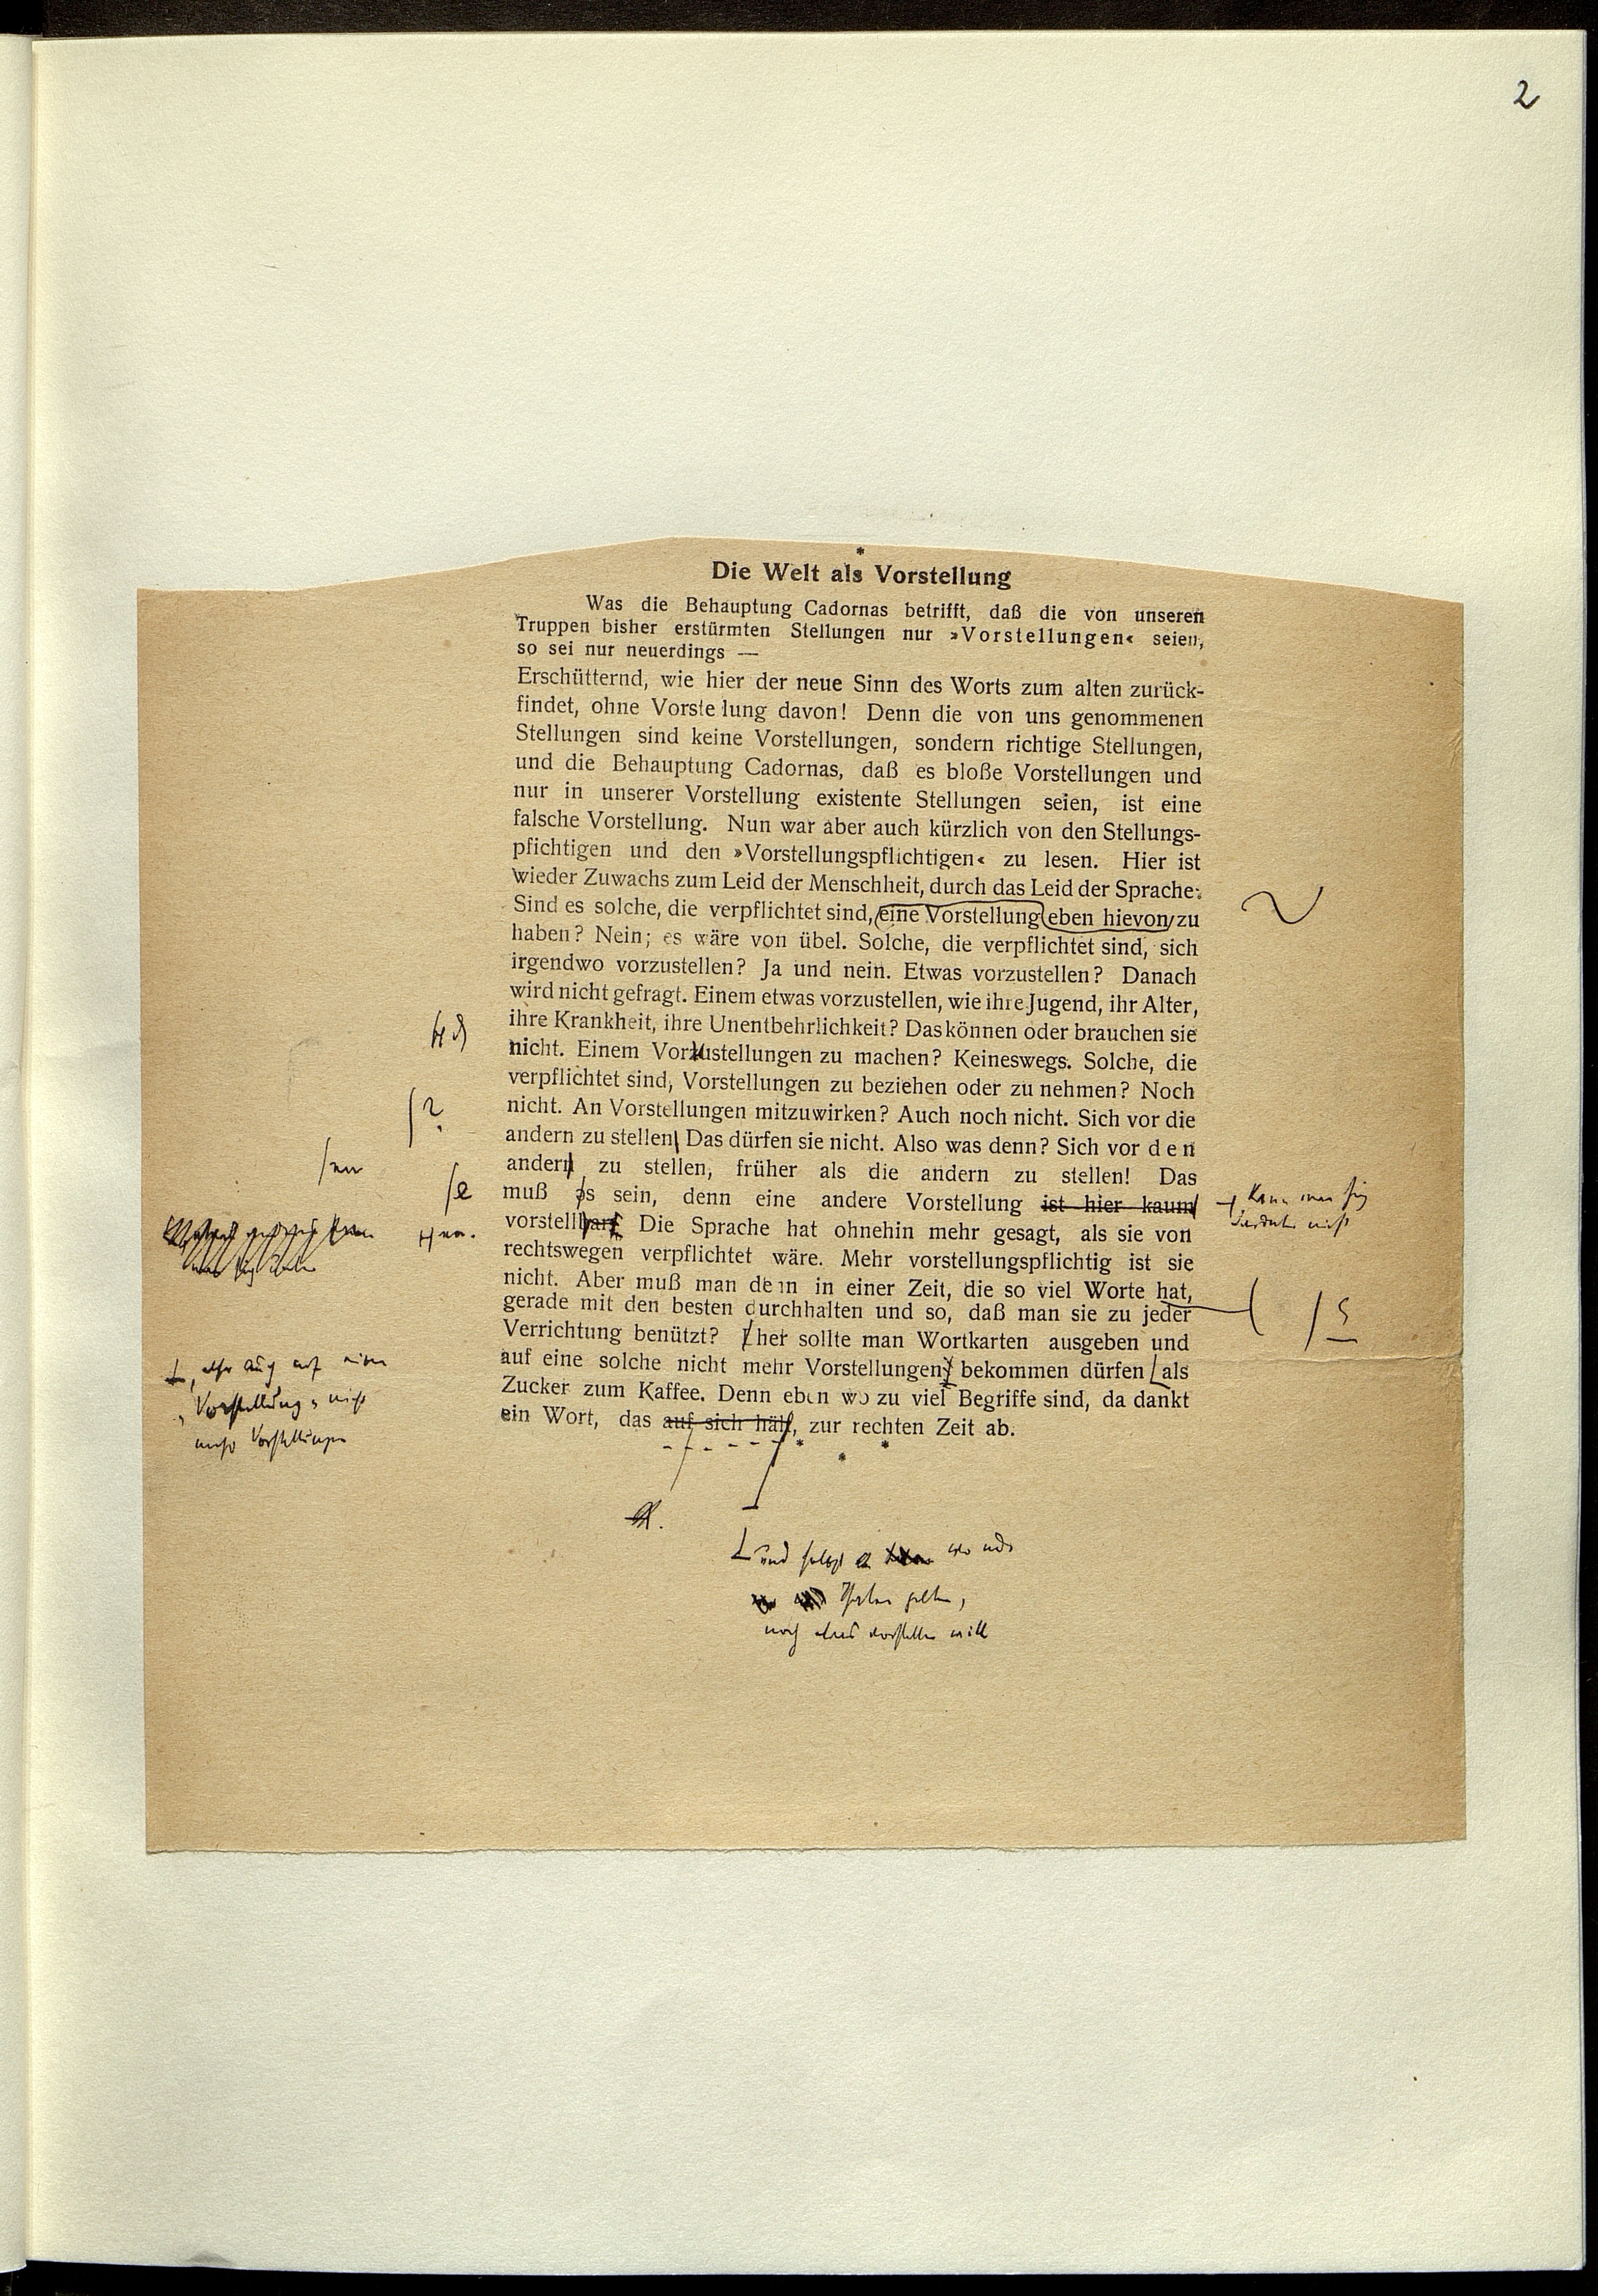 2
*
Die Welt als Vorstellung
Was die Behauptung Cadornas betrifft, daß die von unseren
Truppen bisher erstürmten Stellungen nur »Vorstellungen« seien,
so sei nur neuerdings —
Erschütternd, wie hier der neue Sinn des Worts zum alten zurück-
findet, ohne Vorste lung davon! Denn die von uns genommenen
Stellungen sind keine Vorstellungen, sondern richtige Stellungen,
und die Behauptung Cadornas, daß es bloße Vorstellungen und
nur in unserer Vorstellung existente Stellungen seien, ist eine
falsche Vorstellung. Nun war aber auch kürzlich von den Stellungs-
pfichtigen und den »Vorstellungspflichtigen« zu lesen. Hier ist
wieder Zuwachs zum Leid der Menschheit, durch das Leid der Sprache:
Sind es solche, die verpflichtet sind, eine Vorstellung eben hievon zu
haben? Nein; es wäre von übel. Solche, die verpflichtet sind, sich
irgendwo vorzustellen? Ja und nein. Etwas vorzustellen? Danach
wird nicht gefragt. Einem etwas vorzustellen, wie ihre Jugend, ihr Alter,
ihre Krankheit, ihre Unentbehrlichkeit? Das können oder brauchen sie
nicht. Einem Vorzustellungen zu machen? Keineswegs. Solche, die
verpflichtet sind, Vorstellungen zu beziehen oder zu nehmen? Noch
nicht. An Vorstellungen mitzuwirken? Auch noch nicht. Sich vor die
?
andern zu stellen Das dürfen sie nicht. Also was denn? Sich vor den
andern zu stellen, früher als die andern zu stellen! Das
e
muß es sein, denn eine andere Vorstellung ist hier kaum
kann man sich
nicht
vorstellbar. Die Sprache hat ohnehin mehr gesagt, als sie von
rechtswegen verpflichtet wäre. Mehr vorstellungspflichtig ist sie
nicht. Aber muß man denn in einer Zeit, die so viel Worte hat,
gerade mit den besten durchhalten und so, daß man sie zu jeder
Verrichtung benützt? Eher sollte man Wortkarten ausgeben und
auf eine solche nicht mehr Vorstellungen bekommen dürfen als
, also auch auf eine
»Vorstellung« nicht
mehr Vorstellungen
Zucker zum Kaffee. Denn eben wo zu viel Begriffe sind, da dankt
ein Wort, das auf sich hält, zur rechten Zeit ab.
* * *
und selbst wo nur
Thaten gelten,
noch etwas vorstellen will